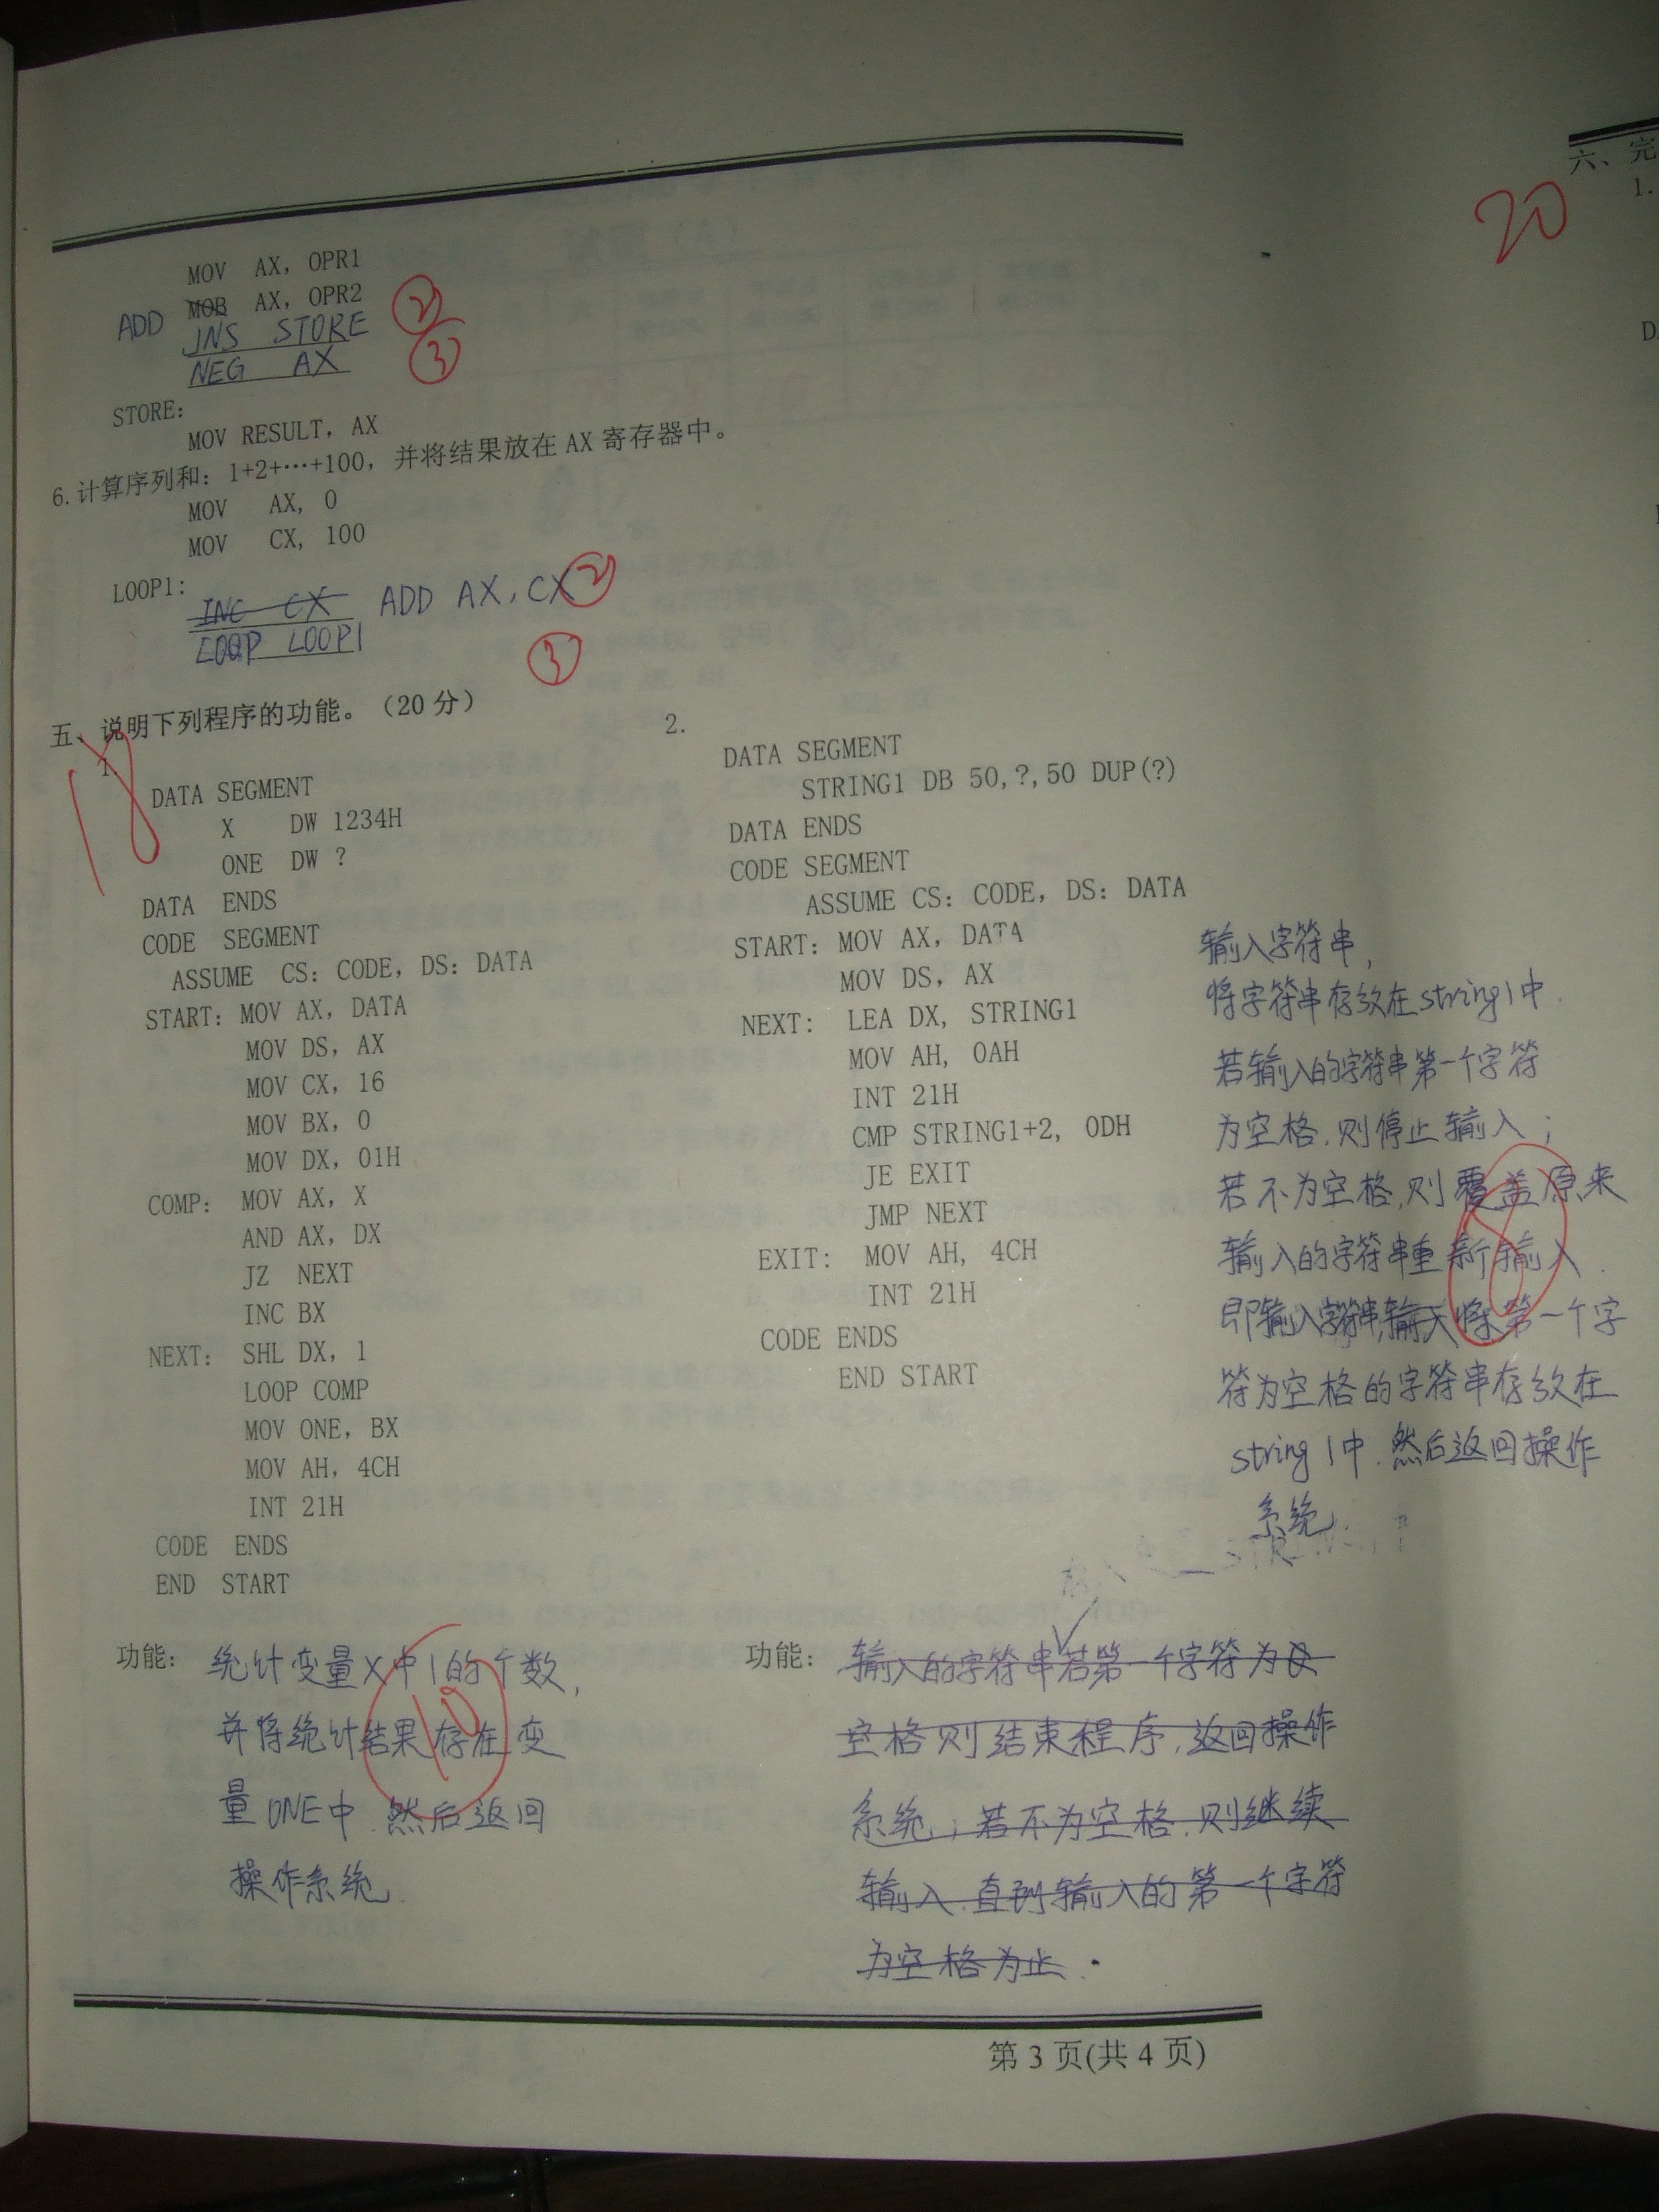 MOV AX, OPR1
ADD MOB AX, OPR2 ②
JNS STORE
NEG AX ③
STORE:
MOV RESULT, AX
6.计算序列和：1+2+…+100，并将结果放在 AX 寄存器中。
MOV AX, 0
MOV CX, 100
LOOP1:
INC CX ADD AX, CX ②
LOOP LOOP1 ③
五、说明下列程序的功能。（20 分）
18
1.
DATA SEGMENT
X DW 1234H
ONE DW ?
DATA ENDS
CODE SEGMENT
ASSUME CS: CODE, DS: DATA
START: MOV AX, DATA
MOV DS, AX
MOV CX, 16
MOV BX, 0
MOV DX, 01H
COMP: MOV AX, X
AND AX, DX
JZ NEXT
INC BX
NEXT: SHL DX, 1
LOOP COMP
MOV ONE, BX
MOV AH, 4CH
INT 21H
CODE ENDS
END START
功能： 统计变量X中1的个数,
并将统计结果存在变
量ONE中.然后返回
操作系统.
10
2.
DATA SEGMENT
STRING1 DB 50,?,50 DUP(?)
DATA ENDS
CODE SEGMENT
ASSUME CS: CODE, DS: DATA
START: MOV AX, DATA
MOV DS, AX
NEXT: LEA DX, STRING1
MOV AH, 0AH
INT 21H
CMP STRING1+2, 0DH
JE EXIT
JMP NEXT
EXIT: MOV AH, 4CH
INT 21H
CODE ENDS
END START
输入字符串,
将字符串存放在string1中.
若输入的字符串第一个字符
为空格,则停止输入;
若不为空格,则覆盖原来
输入的字符串重新输入.
即输入字符串,将第一个字
符为空格的字符串存放在
string1中.然后返回操作
系统.
8
功能： 输入的字符串若第一个字符为
空格则结束程序,返回操作
系统;若不为空格.则继续
输入.直到输入的第一个字符
为空格为止.
第 3 页(共 4 页)
20
六、完
1.
D